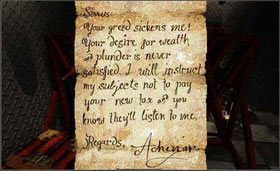 Sirrus
Your greed sickens me!
Your desire for wealth
& plunder is never
satisfied. I will instruct
my subjects not to pay
your new tax and you
know they'll listen to me.
Regards,
Achenar